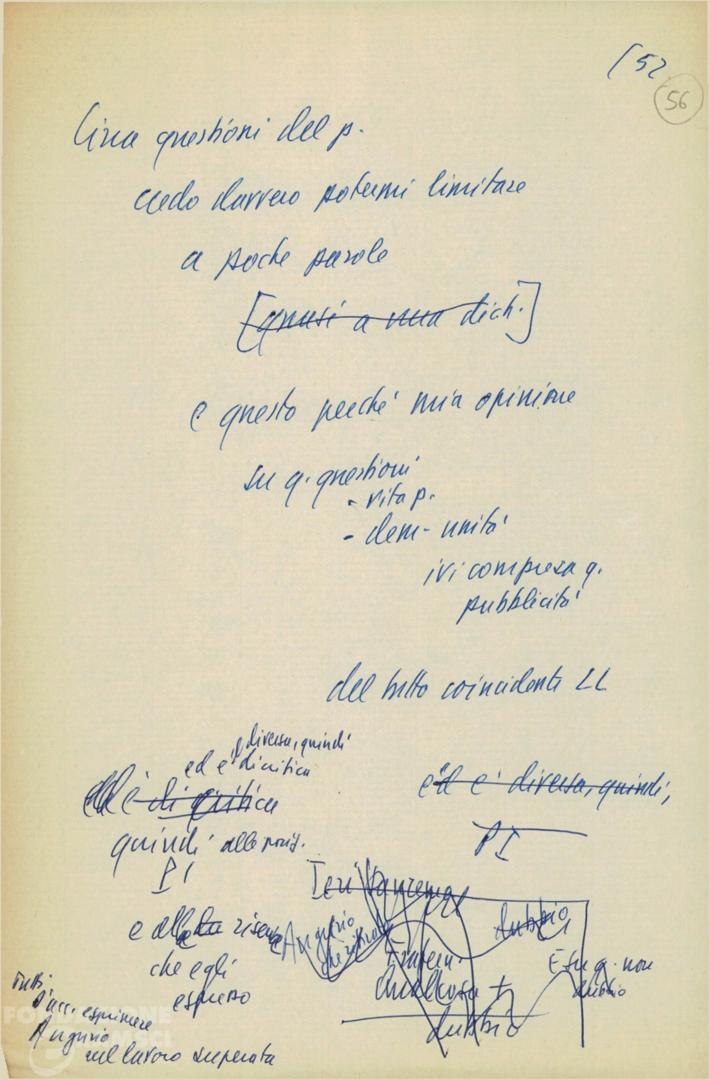 [52
56
Circa questioni del p.
credo davvero potermi limitare
a poche parole
[quasi a una dich.]
e questo perché mia opinione
su q. questioni
- vita p.
- dem-unità
ivi compresa q.
pubblicità
del tutto coincidente LL
diversa, quindi
ed e' di critica
ed è di critica
ed e' diversa, quindi,
quindi alle posiz.
PI
PI
e alla riserva
che egli
espresso
Augurio
dubbio
Fraterni
qualcosa +
dubbio
E su q. non
dubbio
Tutti
D'acc. esprimere
Augurio
nel lavoro superata
FONDAZIONE
GRAMSCI